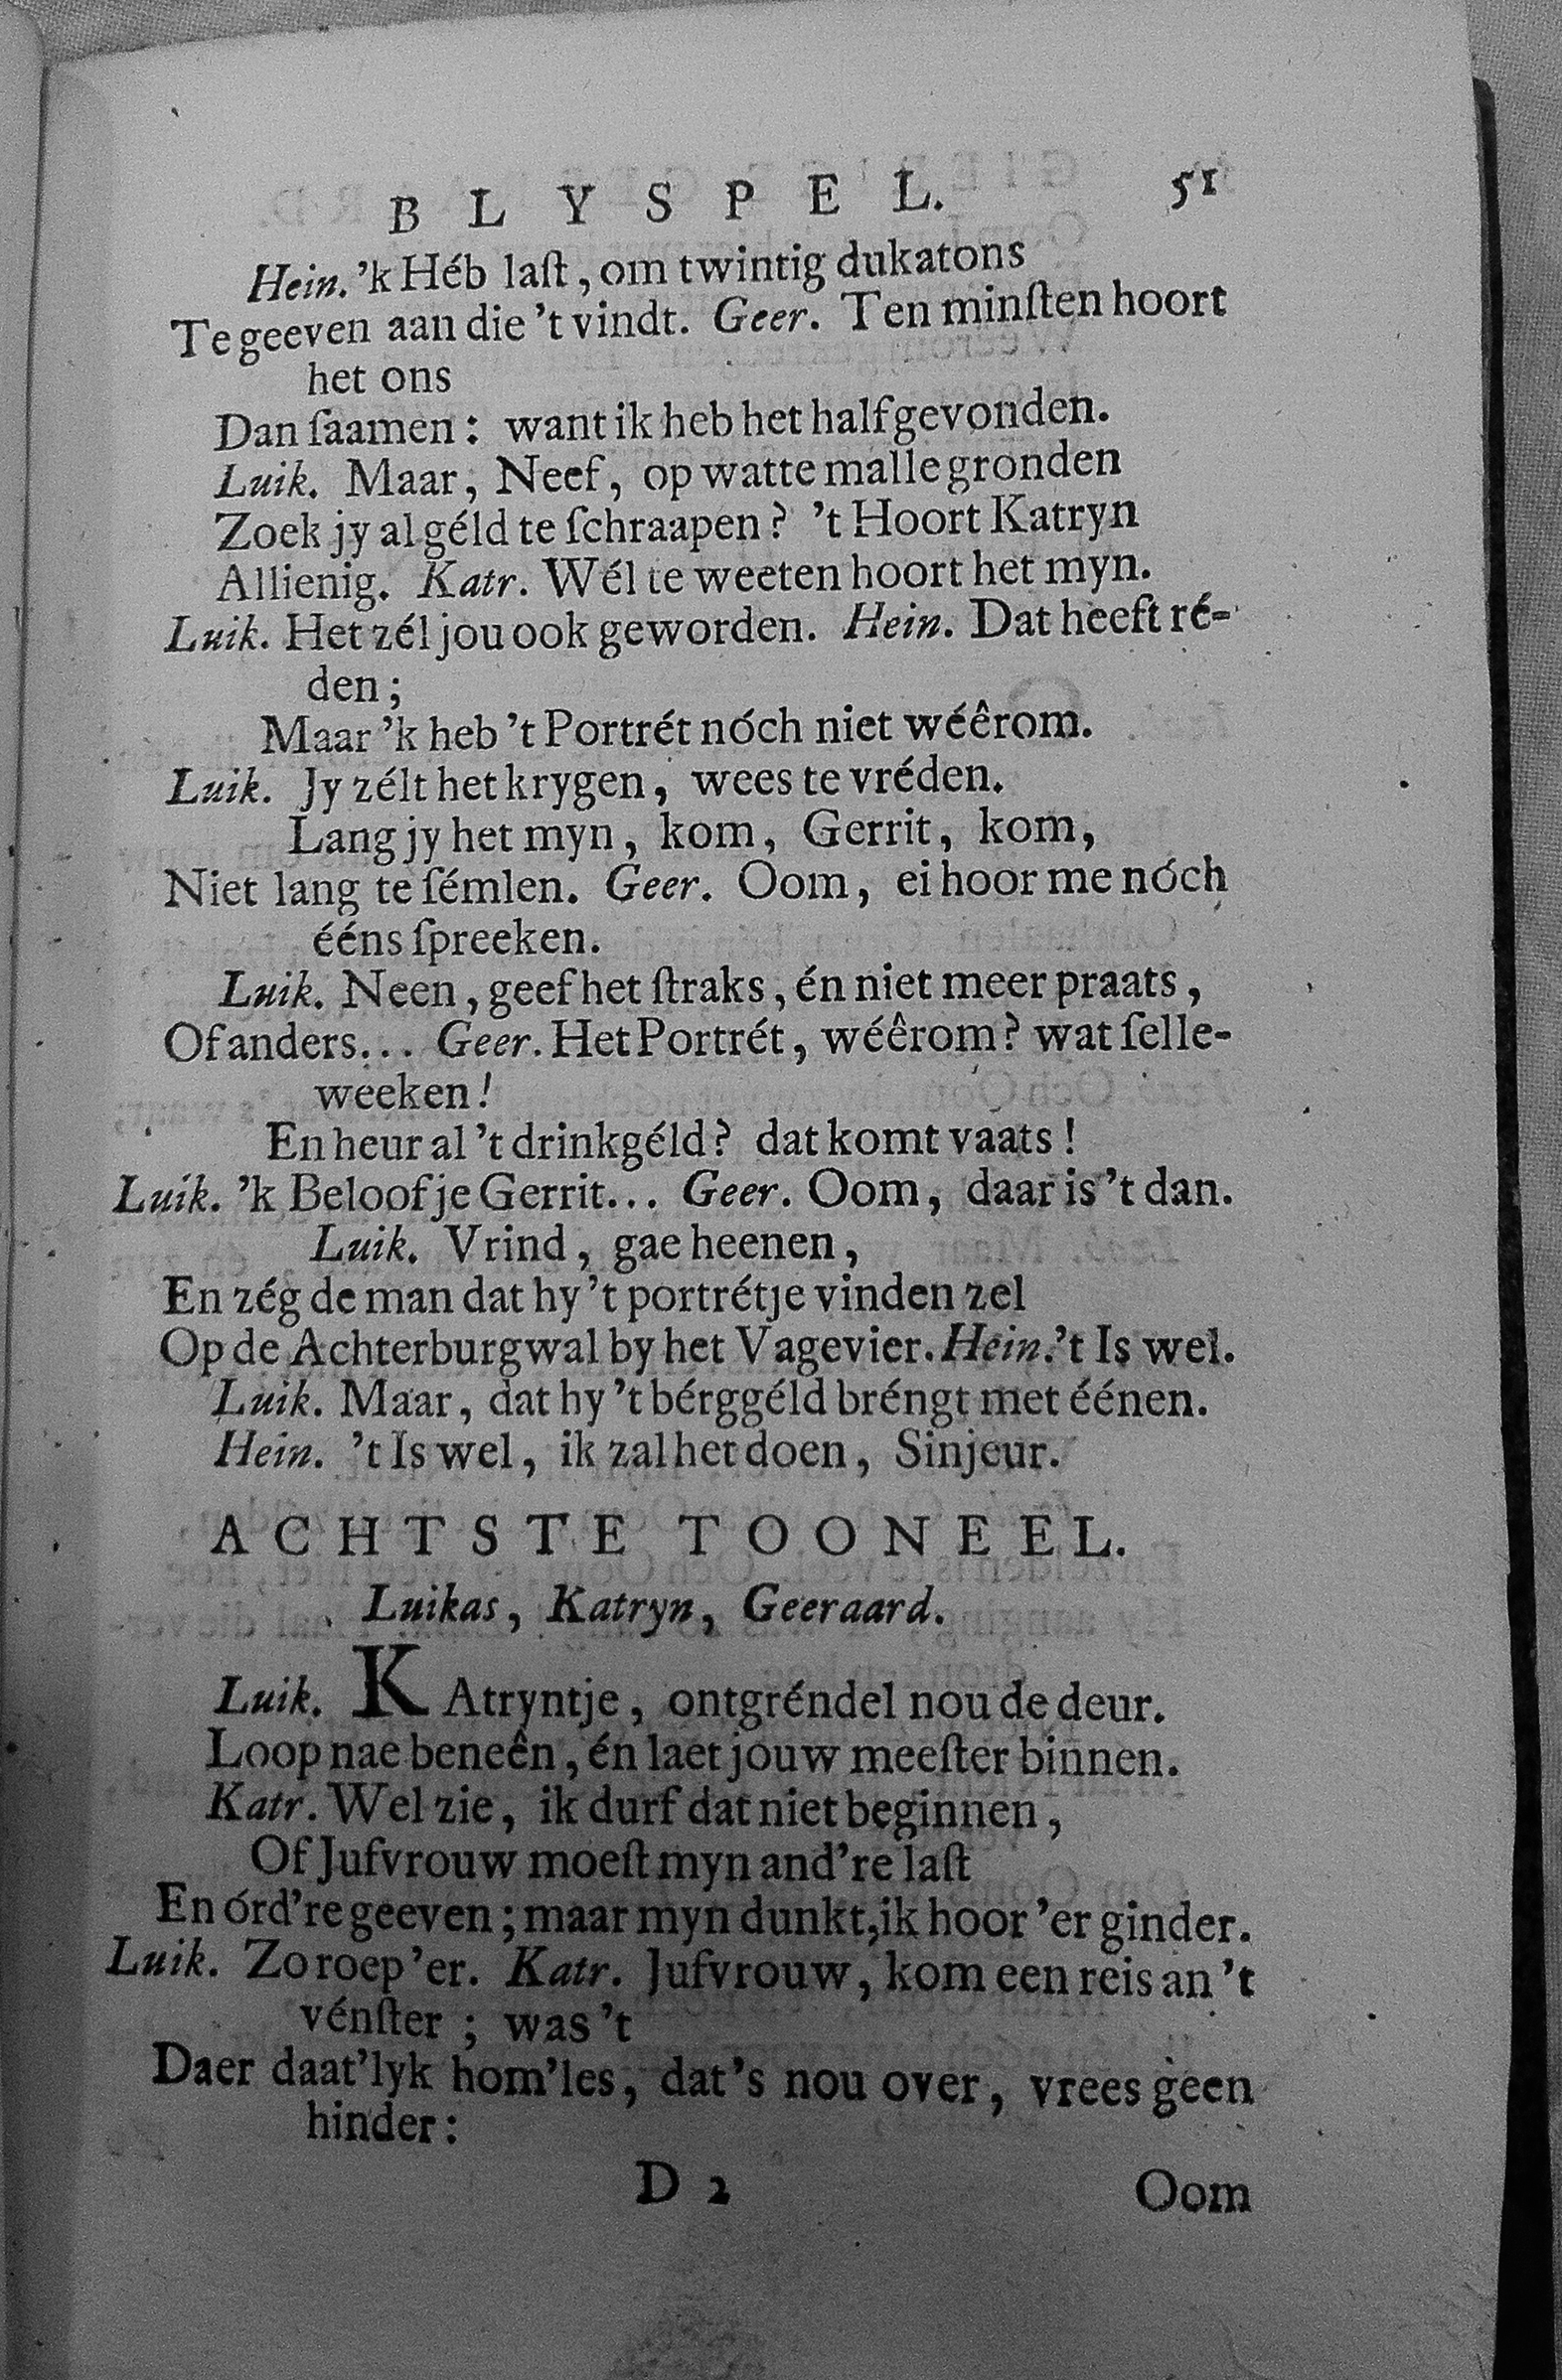 BLYSPEL. 51
Hein. 'k Héb laſt, om twintig dukatons
Te geeven aan die 't vindt. Geer. Ten minſten hoort
het ons
Dan ſaamen: want ik heb het half gevonden.
Luik. Maar, Neef, op watte malle gronden
Zoek jy al géld te ſchraapen? 't Hoort Katryn
Allienig. Katr. Wél te weeten hoort het myn.
Luik. Het zél jou ook geworden. Hein. Dat heeft ré-
den;
Maar 'k heb 't Portrét nóch niet wéêrom.
Luik. Jy zélt het krygen, wees te vréden.
Lang jy het myn, kom, Gerrit, kom,
Niet lang te ſémlen. Geer. Oom, ei hoor me nóch
ééns ſpreeken.
Luik. Neen, geef het ſtraks, én niet meer praats,
Of anders... Geer. Het Portrét, wéêrom? wat ſelle-
weeken!
En heur al 't drinkgéld? dat komt vaats!
Luik. 'k Beloof je Gerrit... Geer. Oom, daar is 't dan.
Luik. Vrind, gae heenen,
En zég de man dat hy 't portrétje vinden zel
Op de Achterburgwal by het Vagevier. Hein. 't Is wel.
Luik. Maar, dat hy 't bérggéld bréngt met éénen.
Hein. 't Is wel, ik zal het doen, Sinjeur.
ACHTSTE TOONEEL.
Luikas, Katryn, Geeraard.
Luik. KAtryntje, ontgréndel nou de deur.
Loop nae beneên, én laet jouw meeſter binnen.
Katr. Wel zie, ik durf dat niet beginnen,
Of Jufvrouw moeſt myn and're laſt
En órd're geeven; maar myn dunkt, ik hoor 'er ginder.
Luik. Zo roep 'er. Katr. Jufvrouw, kom een reis an 't
vénſter; was 't
Daer daat'lyk hom'les, dat's nou over, vrees geen
hinder:
D 2 Oom